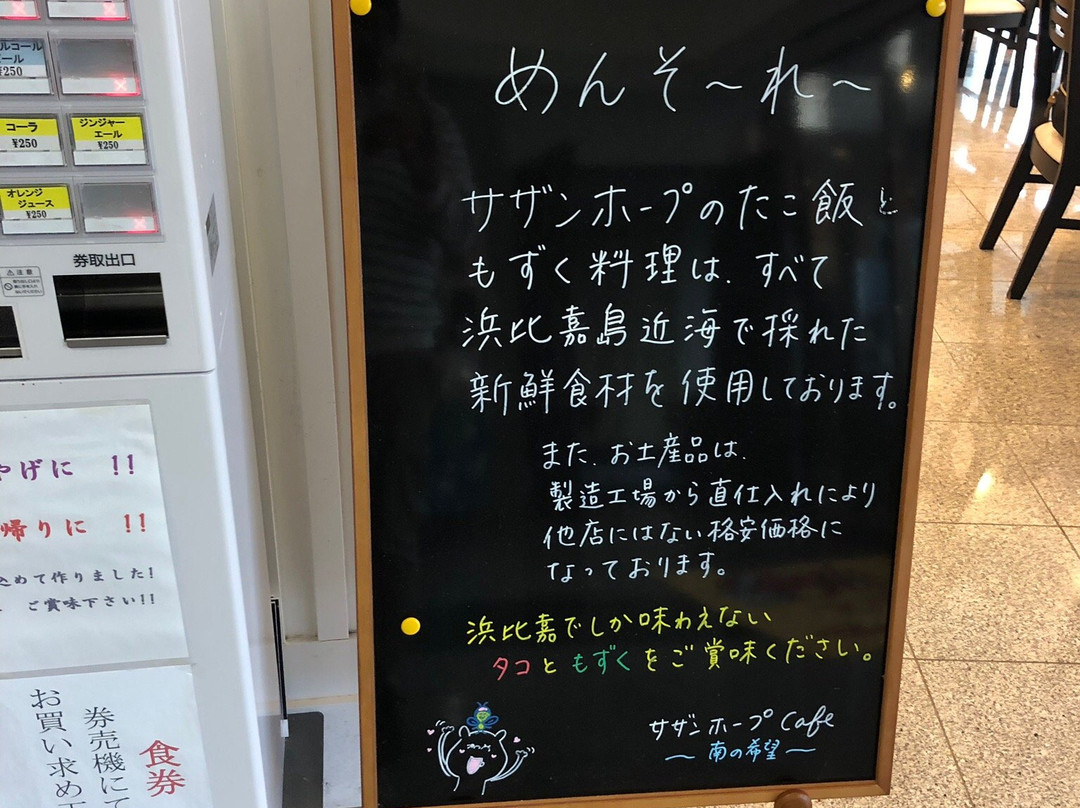 めんそ～れ～
サザンホープのたこ飯と
もずく料理は、すべて
浜比嘉島近海で採れた
新鮮食材を使用しております。
また、お土産品は、
製造工場から直仕入れにより
他店にはない格安価格に
なっております。
浜比嘉でしか味わえない
タコともずくをご賞味ください。
サザンホープCafe
～南の希望～
¥250
コーラ
¥250
ジンジャー
エール
¥250
オレンジ
ジュース
¥250
券取出口
注意
やげに !!
帰りに !!
込めて作りました!
ご賞味下さい!!
食券
券売機にて
お買い求め下